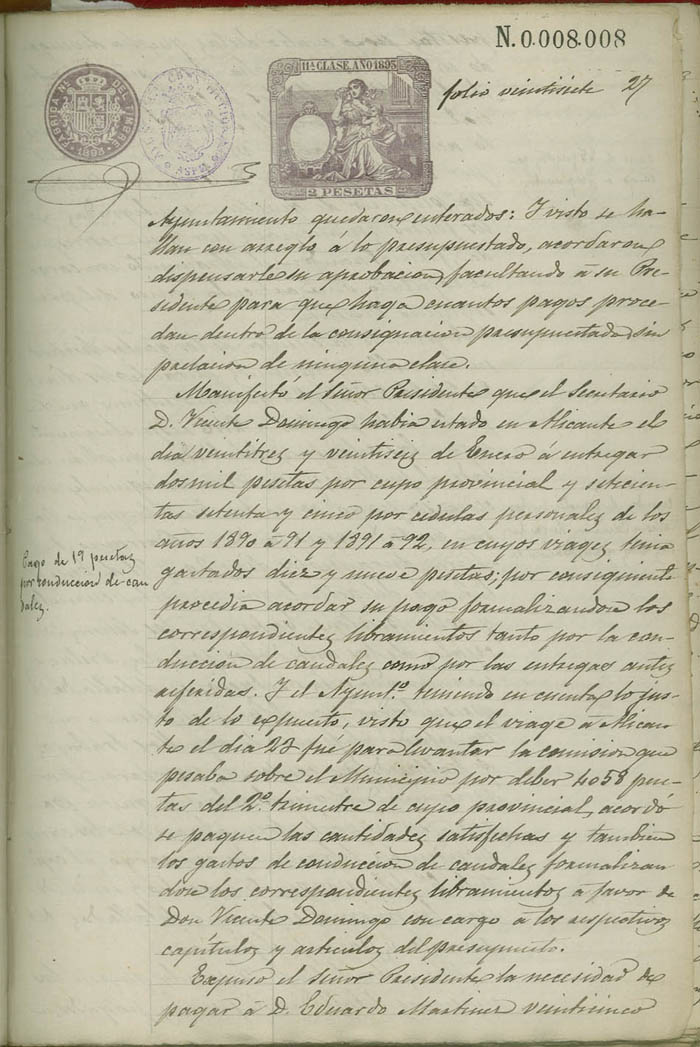 N.0.008.008
11ª CLASE, AÑO 1893
2 PESETAS
FABRICA NL. DEL TIMBRE
1893
ASPE
folio veintisiete 27
Ayuntamiento quedaron enterados: Y visto se ha-
llan con arreglo á lo presupuestado, acordaron
dispensarle su aprobacion, facultando á su Pre-
sidente para que haga cuantos pagos proce-
dan dentro de la consignacion presupuestada, sin
prelacion de ninguna clase.
Manifestó el señor Presidente que el Secretario
D. Vicente Domingo habia estado en Alicante el
dia veintitres y veintiseis de Enero á entregar
dos mil pesetas por cupo provincial y setecien-
tas setenta y cinco por cedulas personales de los
años 1890 á 91 y 1891 á 92, en cuyos viages tenia
gastados diez y nueve pesetas; por consiguiente
procedia acordar su pago formalizandose los
correspondientes libramientos tanto por la con-
duccion de caudales como por las entregas antes
referidas. Y el Ayunt.º teniendo en cuenta lo jus-
to de lo expuesto, visto que el viage á Alican-
te el dia 23 fué para levantar la comision que
pesaba sobre el Municipio por deber 4058 pese-
tas del 2º. trimestre de cupo provincial, acordó
se paguen las cantidades satisfechas y tambien
los gastos de conduccion de caudales formalizan
dose los correspondientes libramientos á favor de
Don Vicente Domingo con cargo á los respectivos
capitulos y articulos del presupuesto.
Expuso el señor Presidente la necesidad de
pagar á D. Eduardo Martinez veinticinco
Pago de 19 pesetas
por conduccion de cau
dales.